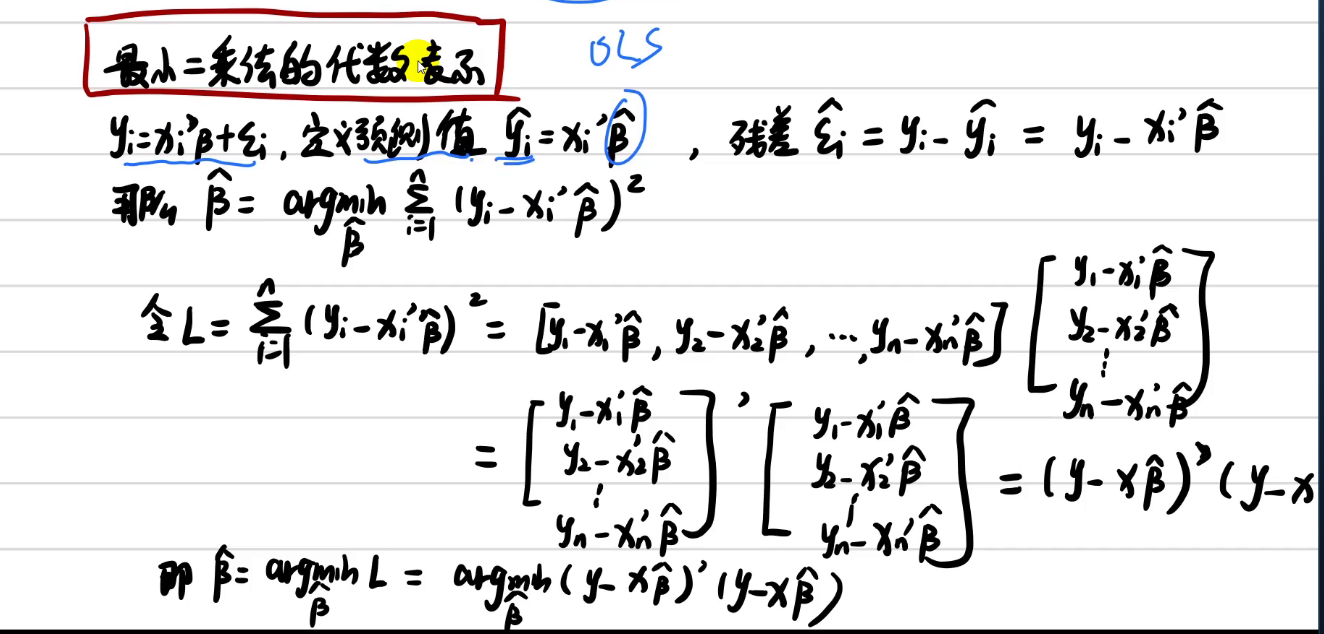 OLS
最小二乘法的代数表示
yᵢ=xᵢ'β+εᵢ, 定义预测值 ŷᵢ=xᵢ'β̂ , 残差 ε̂ᵢ = yᵢ-ŷᵢ = yᵢ-xᵢ'β̂
那么 β̂ = argmin_β̂ Σᵢ₌₁ⁿ (yᵢ-xᵢ'β̂)²
令 L = Σᵢ₌₁ⁿ (yᵢ-xᵢ'β̂)² = [y₁-x₁'β̂, y₂-x₂'β̂, ⋯, yₙ-xₙ'β̂] [y₁-x₁'β̂ y₂-x₂'β̂ ⋮ yₙ-xₙ'β̂]
= [y₁-x₁'β̂ y₂-x₂'β̂ ⋮ yₙ-xₙ'β̂]' [y₁-x₁'β̂ y₂-x₂'β̂ ⋮ yₙ-xₙ'β̂] = (y-xβ̂)'(y-x
即 β̂ = argmin_β̂ L = argmin_β̂ (y-xβ̂)'(y-xβ̂)